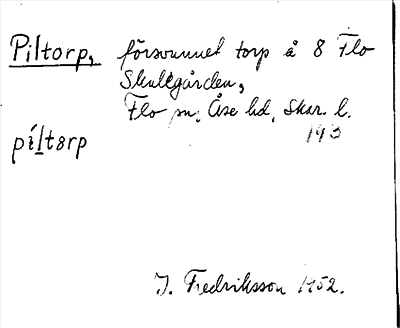 Piltorp, försvunnet torp å 8 Flo
Skattegården,
Flo sn, Åse hd, Skar. l.
193
píltɵrp
I. Fredriksson 1952.